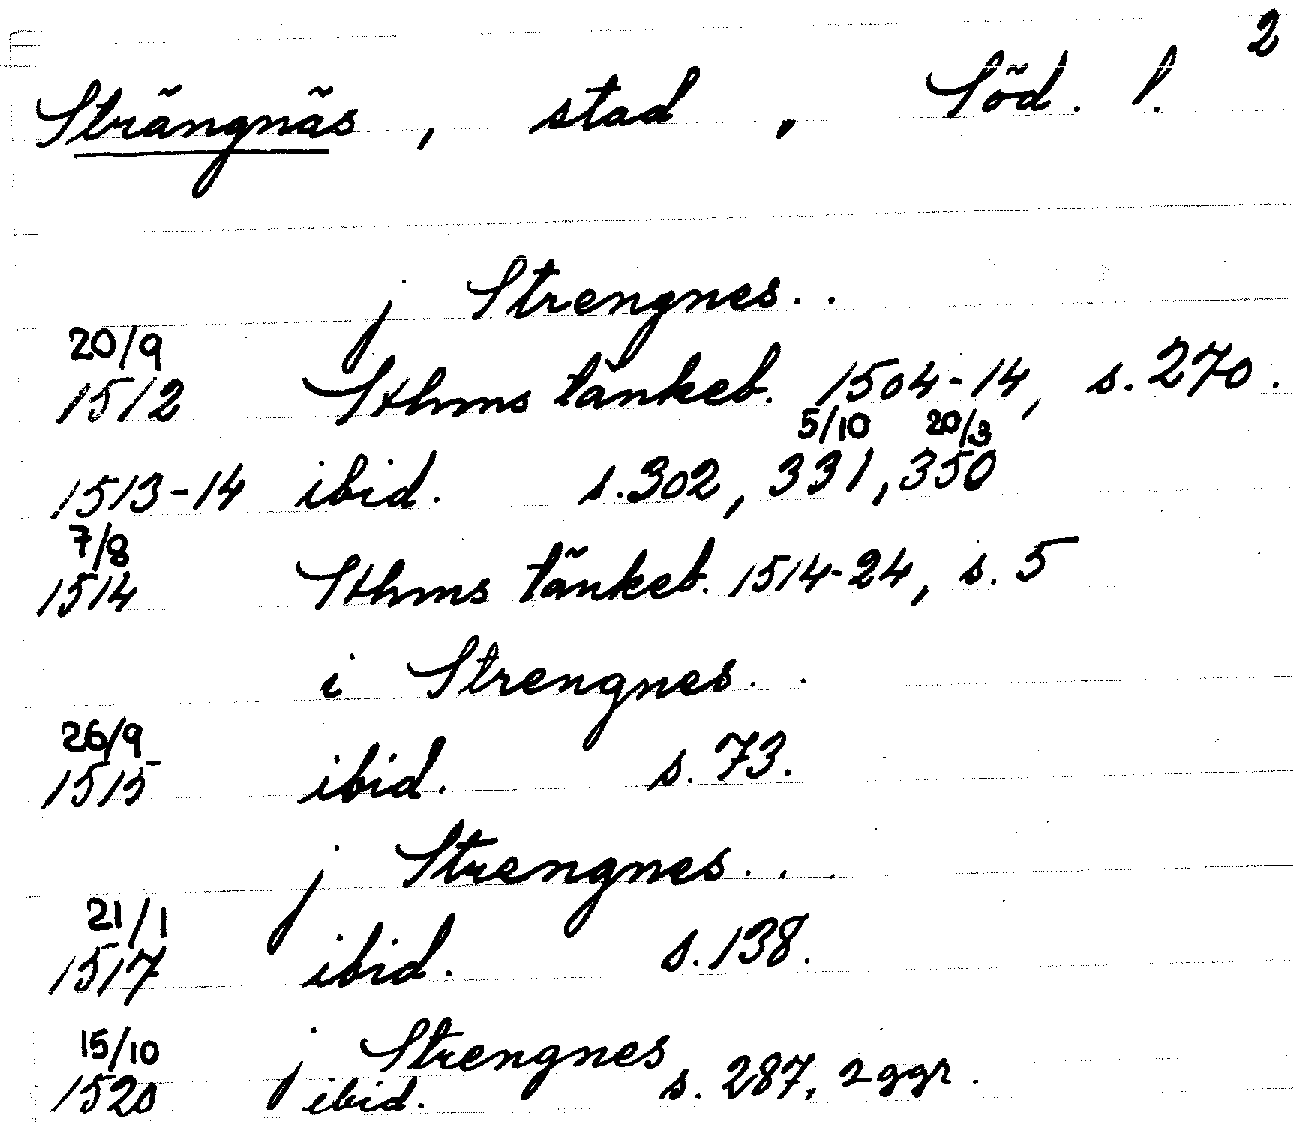 2
Strängnäs, stad, Söd. l.
j Strengnes..
20/9
1512 Sthms tänkeb. 1504-14, s. 270.
5/10 20/3
1513-14 ibid. s. 302, 331, 350
7/8
1514 Sthms tänkeb. 1514-24, s. 5
i Strengnes..
26/9
1515 ibid. s. 73.
j Strengnes...
21/1
1517 ibid. s. 138.
15/10 j Strengnes
1520 ibid. s. 287, 2 ggr.